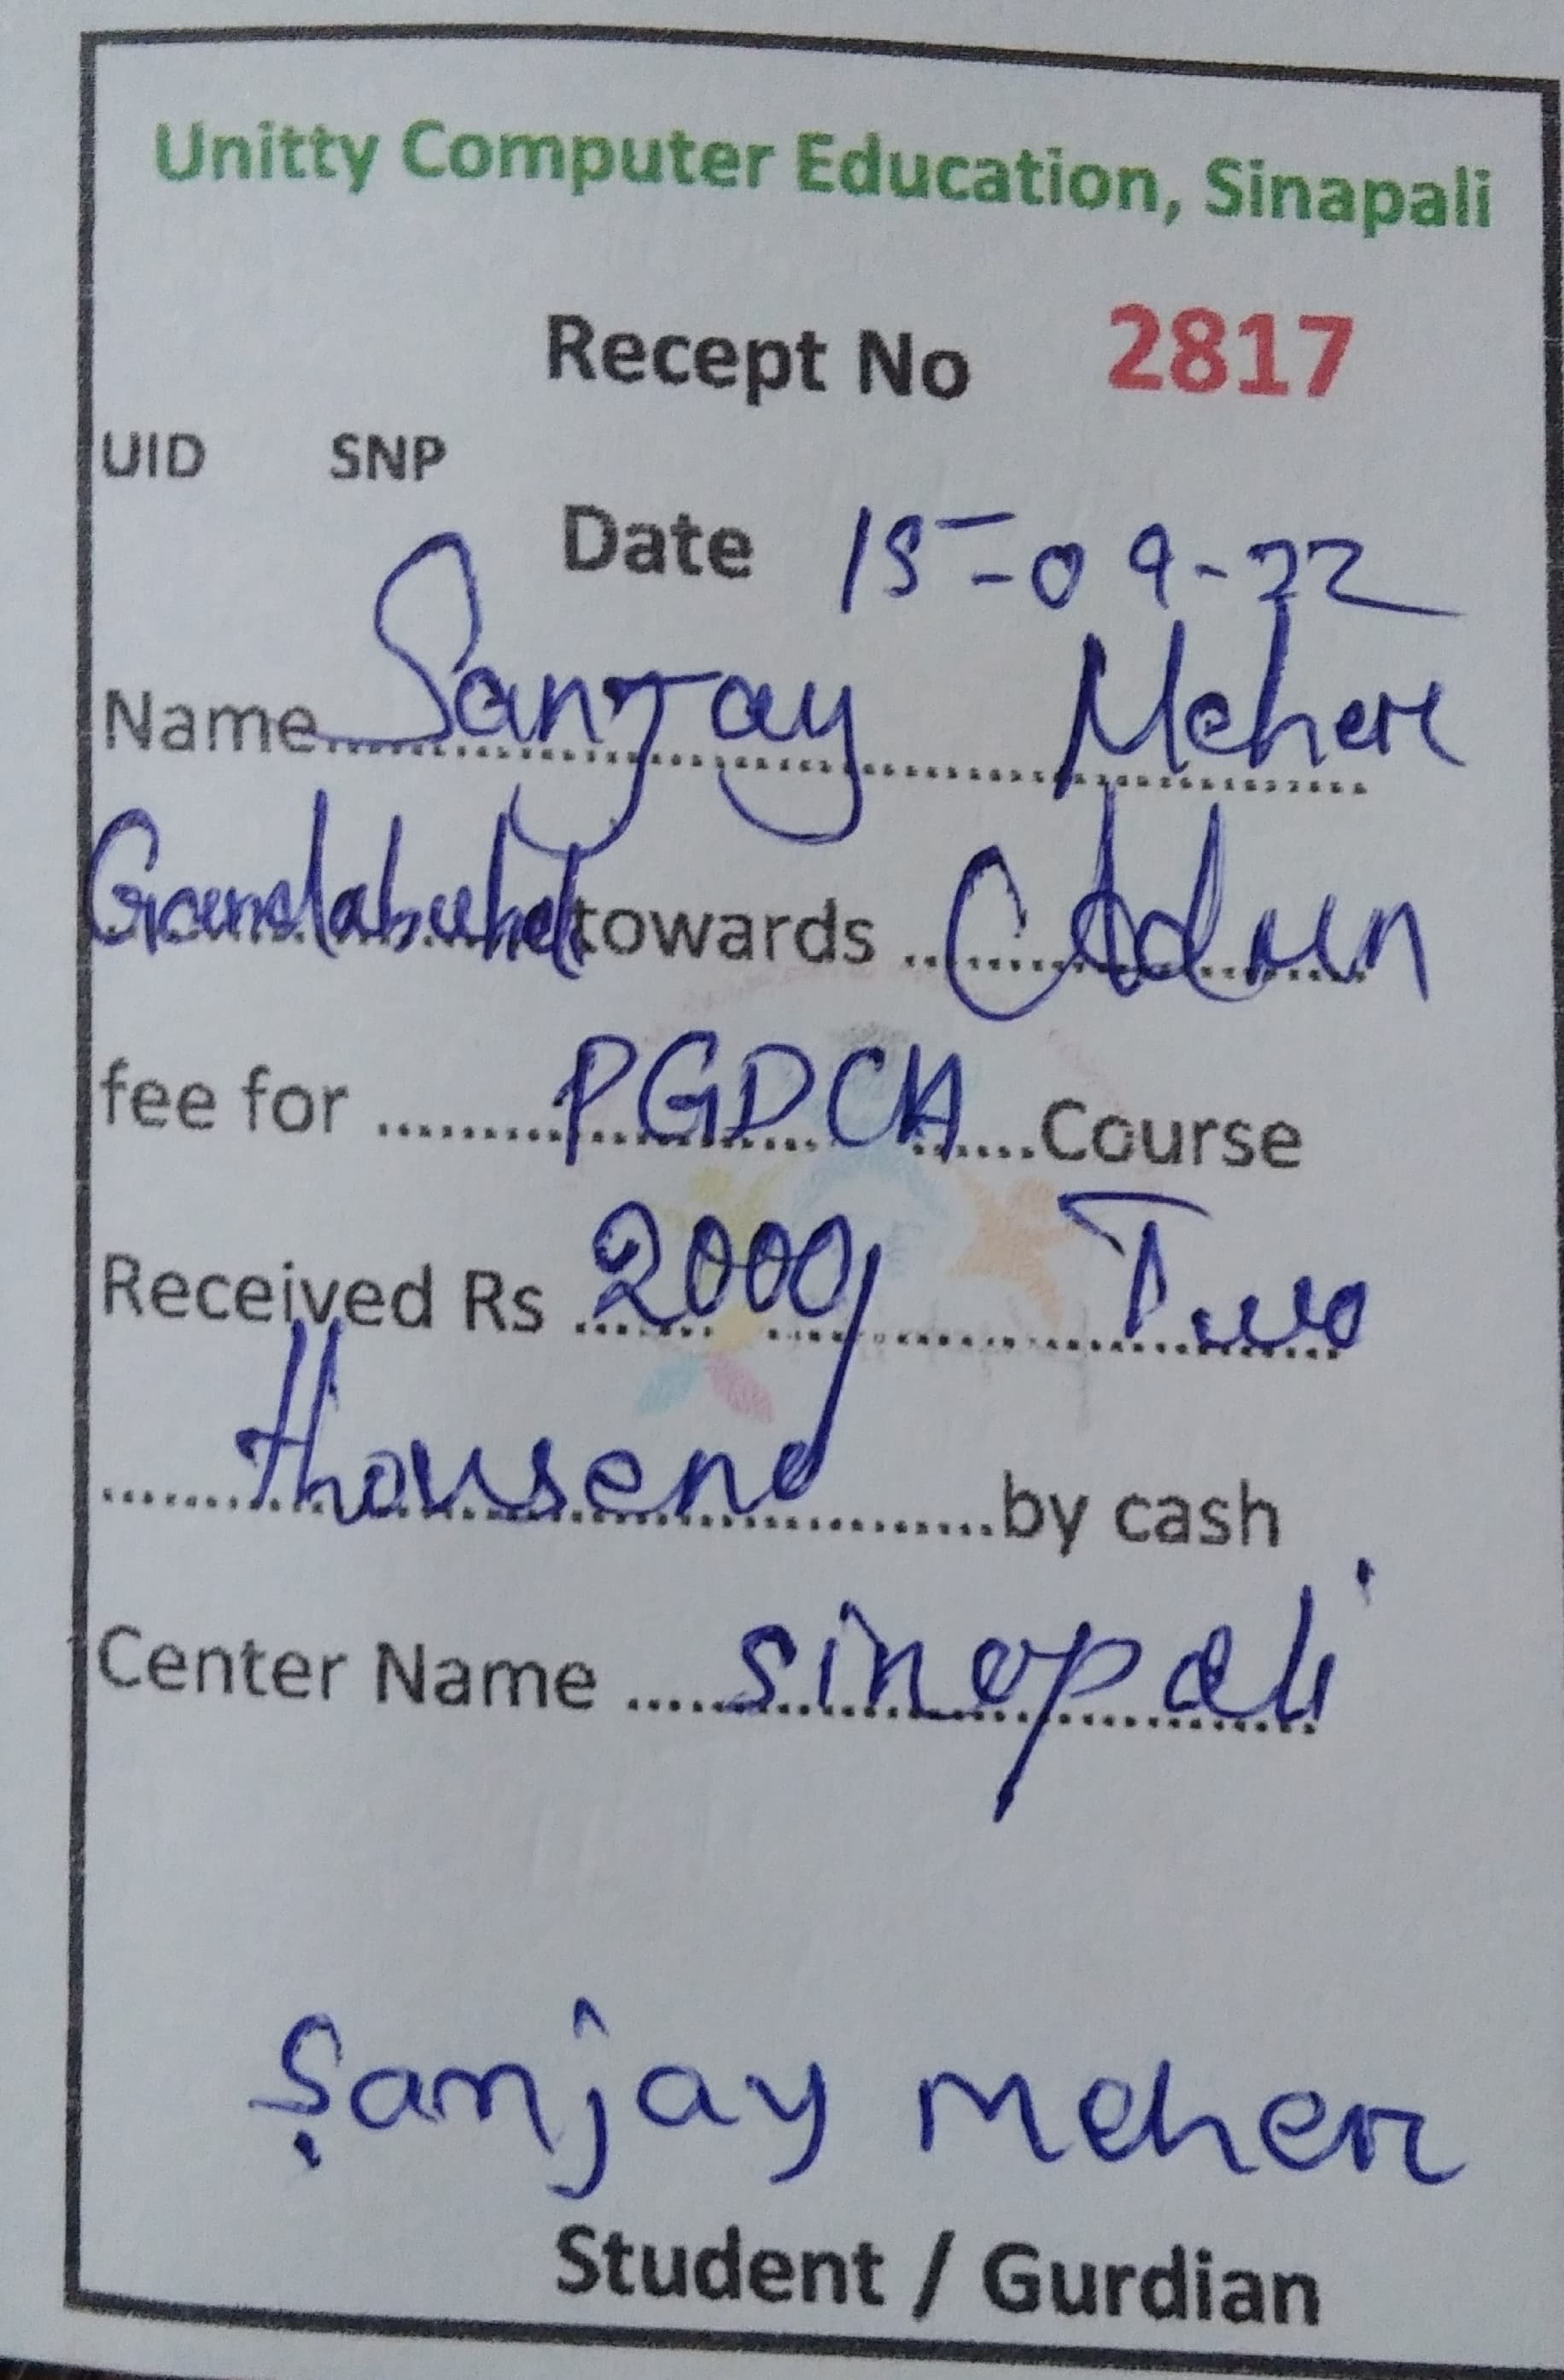 Unitty Computer Education, Sinapali
Recept No 2817
UID SNP
Date 15-09-22
Name Sanjay Meher
towards
fee for PGDCA Course
Received Rs 2000/ Two
thousend by cash
Center Name sinapali
Sanjay meher
Student / Gurdian